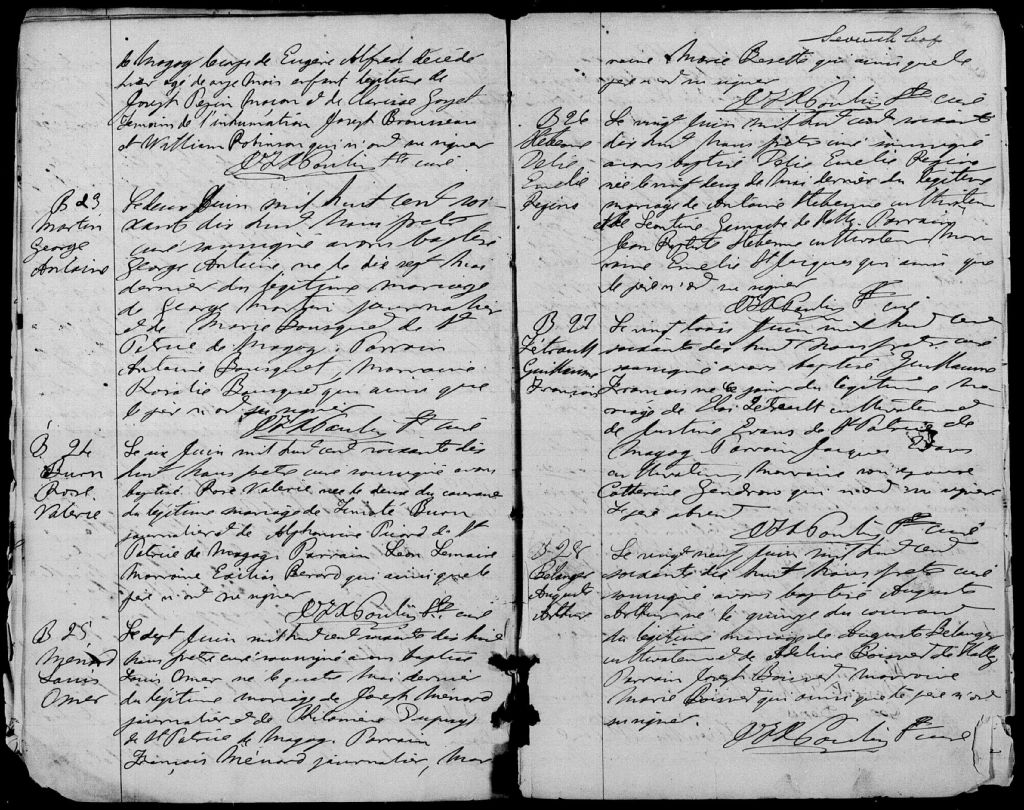 de Magog le corps de Eugène Alfred décédé
hier agé de onze mois enfant légitime de
Joseph Pepin Macon et de Clarisse
Temoins de l'inhumation Joseph Brousseau
et William Robinson qui n'ont su signer
Poulin Ptre curé
B 23
Martin
George
Antoine
Le deux Juin mil huit cent soi-
xante dix huit nous pretre
curé soussigné avons baptisé
George Antoine, né le dix sept mai
dernier du légitime mariage
de George Martin journalier
et de Marie Bousquet de St
Patrice de Magog. Parrain
Antoine Bousquet, Marraine
Rosalie Bousquet qui ainsi que
le pere n'ont su signer
Poulin Ptre curé
B 24
Buron
Rose
Valerie
Le six Juin mil huit cent soixante dix
huit nous pretre curé soussigné avons
baptisé Rose Valerie née le deux du courant
du légitime mariage de Buron
journalier et de Alphonsine Picard de St
Patrice de Magog Parrain Léon Lemaire
Marraine Exilias Berard qui ainsi que le
pere n'ont su signer
Poulin Ptre curé
B 25
Ménard
Louis
Omer
Le sept Juin mil huit cent soixante dix huit
nous pretre curé soussigné avons baptisé
Louis Omer né le quatre mai dernier
du légitime mariage de Joseph Ménard
journalier et de Philomène Dupuys
de St Patrice de Magog Parrain
François Ménard journalier, Mar
Seventh leaf
raine Marie Rosette qui ainsi que le
pere n'ont su signer
Poulin Ptre curé
B 26
Hebenne
Delie
Emelie
Regina
Le vingt Juin mil huit cent soixante
dix huit nous pretre curé soussigné
avons baptisé Delie Emelie Regina
née le vingt deux de mai dernier du légitime
mariage de Antoine Hebenne cultivateur
et de Leontine de Hatley. Parrain
Jean Baptiste Hebenne cultivateur Mar
raine Emelie St Jacques qui ainsi que
le pere n'ont su signer
Poulin Ptre curé
B 27
Tétrault
Guillaume
François
Le vingt trois Juin mil huit cent
soixante dix huit nous pretre curé
soussigné avons baptisé Guillaume
François né ce jour du légitime ma
riage de Eloi Tetrault cultivateur et
de Justine Evans de St Patrice de
Magog Parrain Jacques Evans
cultivateur, marraine son epouse
Catherine Gendron qui n'ont su signer
Le pere absent
Poulin Ptre curé
B 28
Belanger
Auguste
Arthur
Le vingt neuf Juin mil huit cent
soixante dix huit nous pretre curé
soussigné avons baptisé Auguste
Arthur né le quinze du courant
du légitime mariage de Auguste Bélanger
cultivateur et de Adeline Boisvert de Hatley
Parrain Joseph Boisvert Marraine
Marie Boisvert qui ainsi que le pere n'ont
su signer.
Poulin Ptre curé